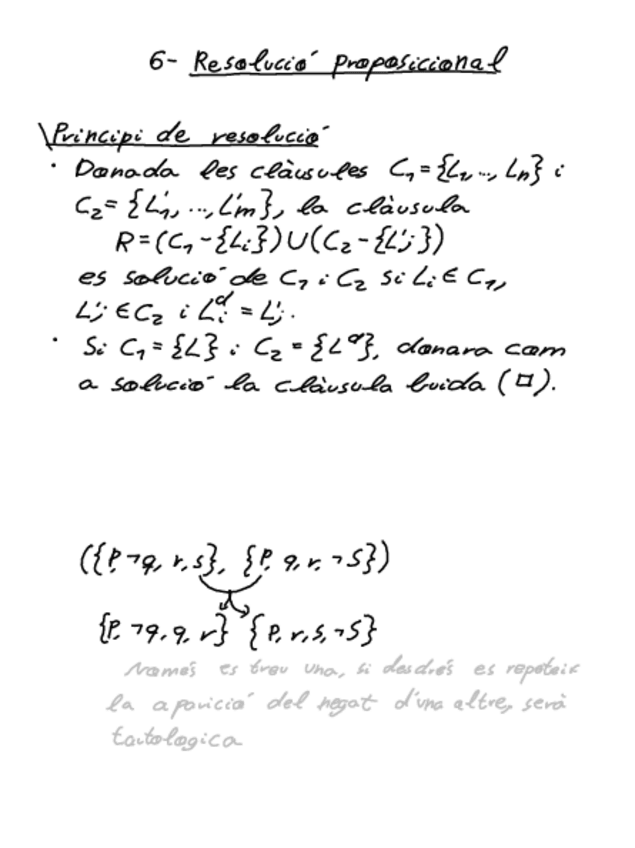 6- Resolució proposicional
Principi de resolució
· Donada les clàusules C₁={L₁, ..., Lₙ} i
C₂= {L'₁, ..., L'm}, la clàusula
R=(C₁-{Lᵢ})∪(C₂-{L'ⱼ})
es solució de C₁ i C₂ si Lᵢ ∈ C₁,
L'ⱼ ∈ C₂ i Lᵢᵈ = L'ⱼ.
· Si C₁={L} i C₂ = {Lᵈ}, donara com
a solució la clàusula buida (□).
({P, ¬q, r, s}, {P, q, r, ¬S})
{P, ¬q, q, r} {P, r, S, ¬S}
Només es treu una, si després es repeteix
la aparició del negat d'una altre, serà
tautologica